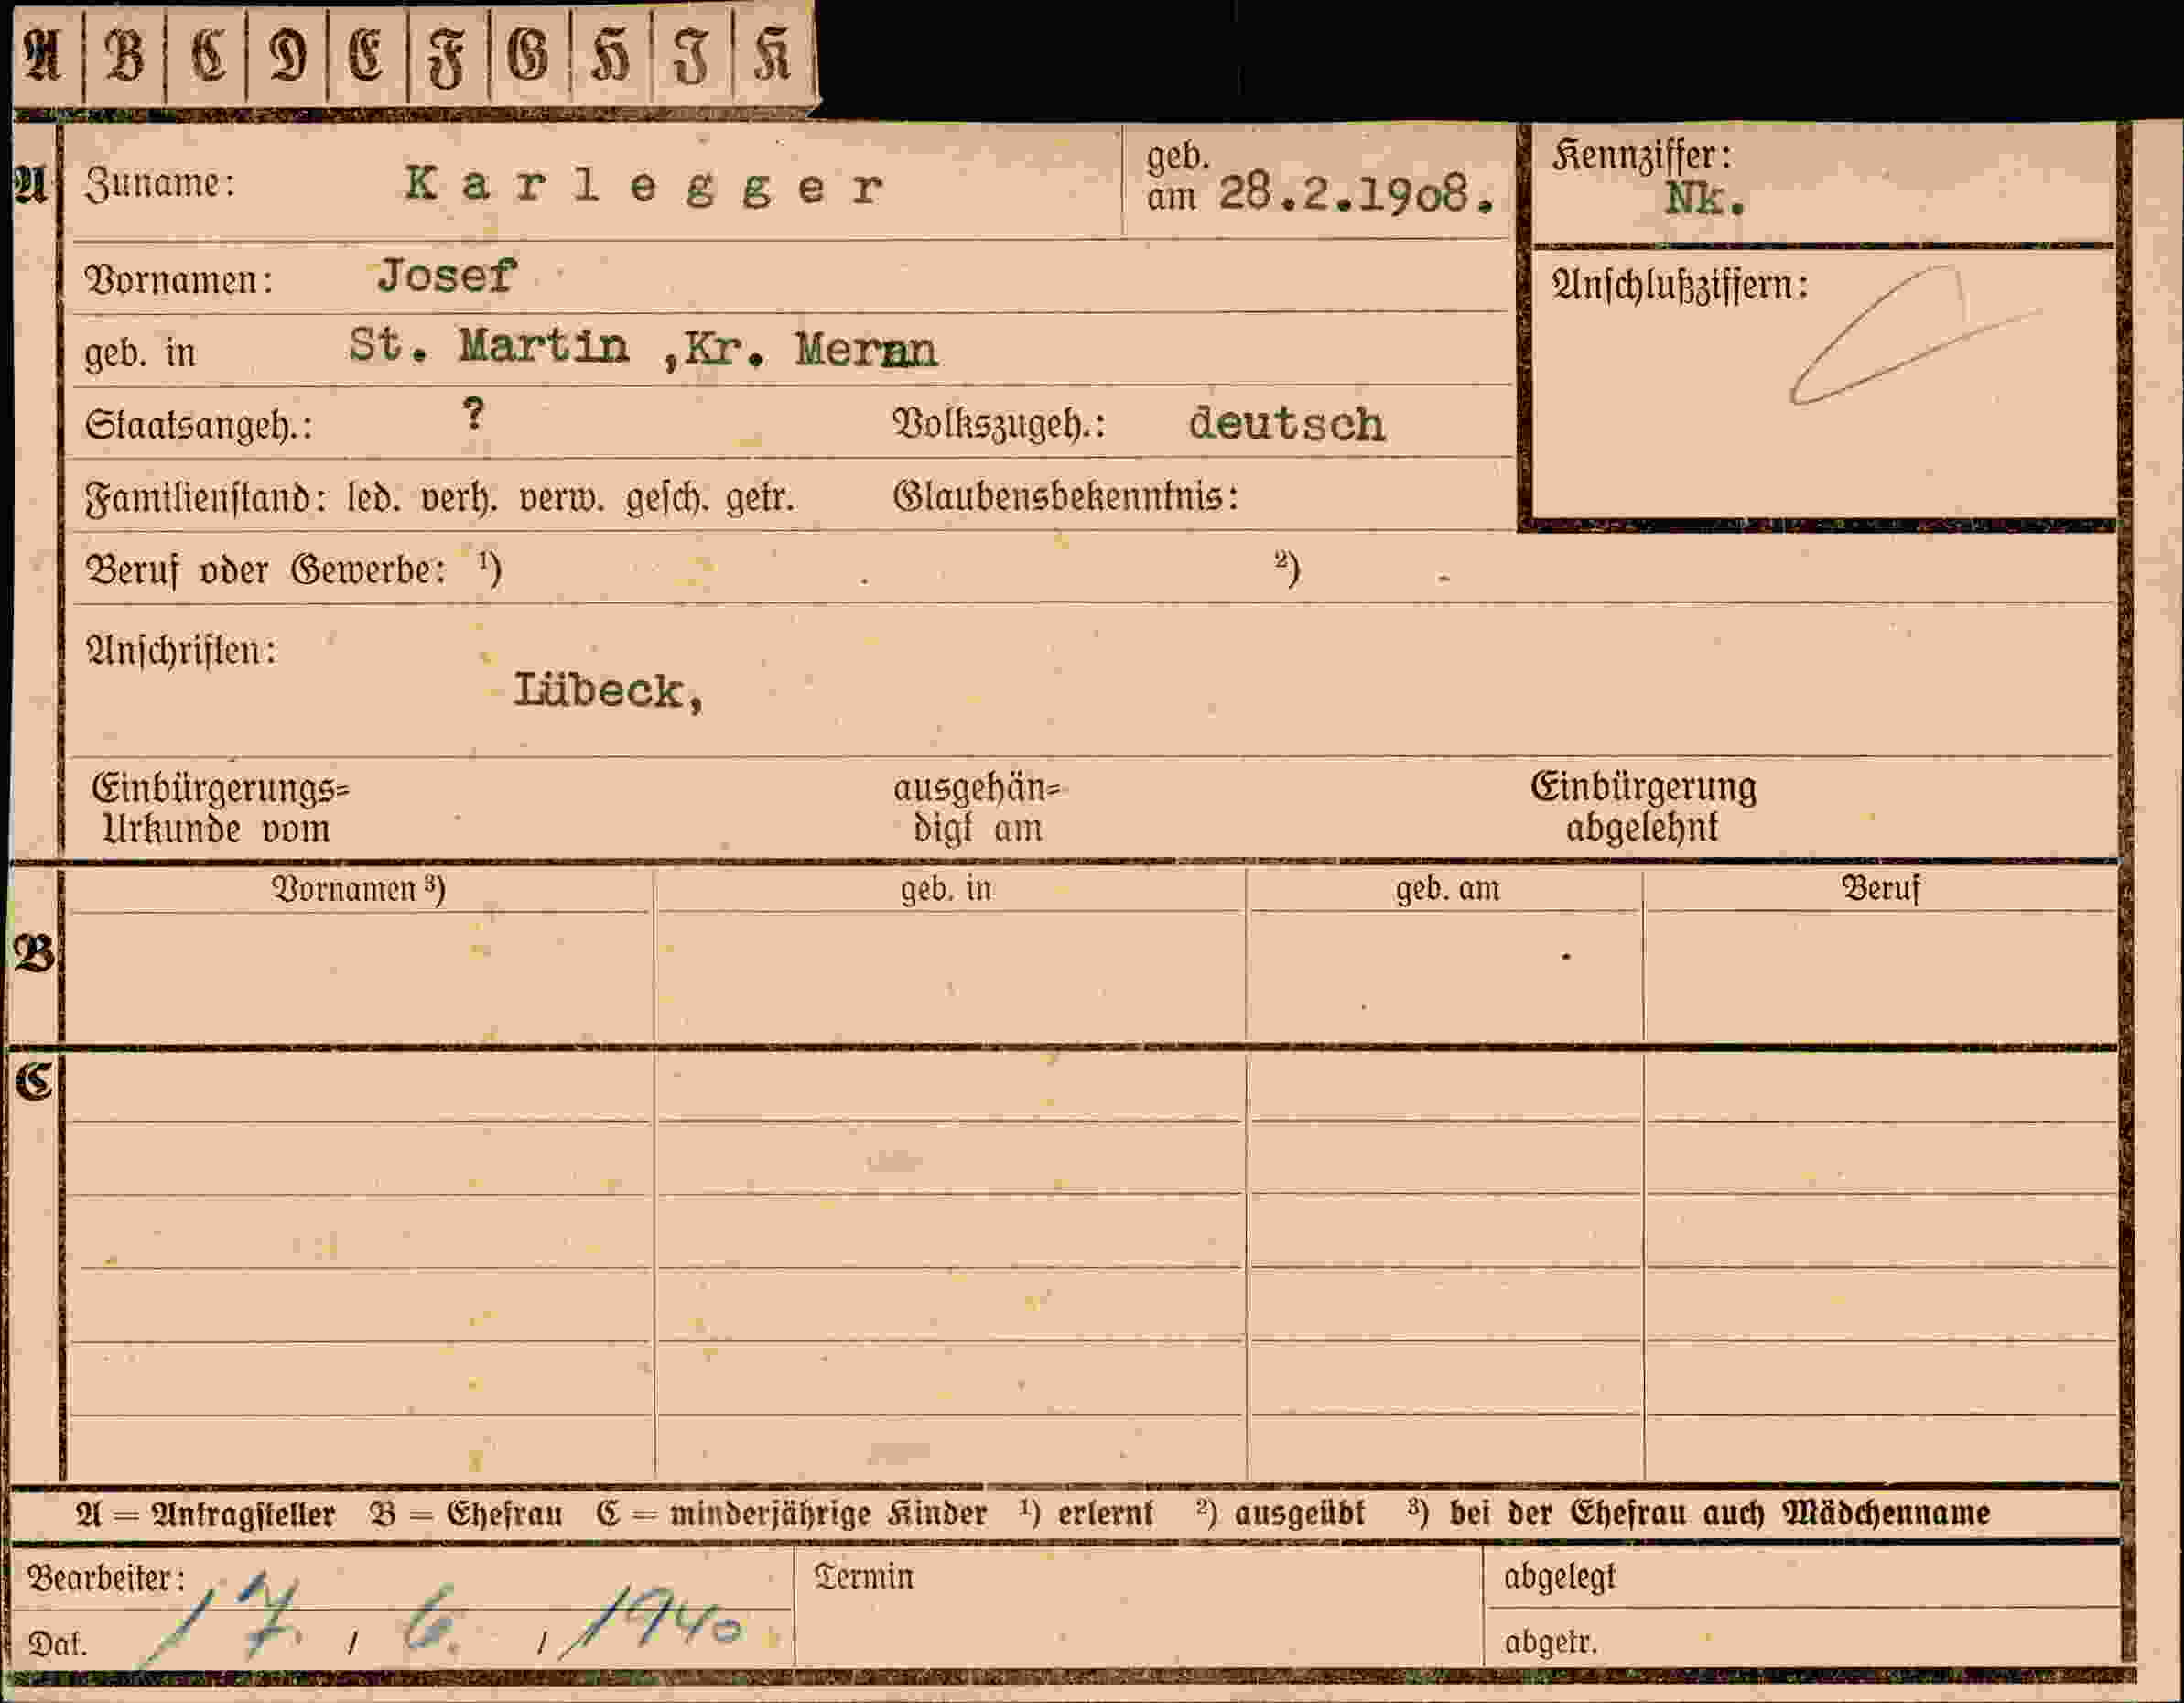 A B C D E F G H I K
A Zuname: Karlegger geb. am 28.2.1908. Kennziffer: Nk.
Vornamen: Josef Anschlußziffern:
geb. in St. Martin ,Kr. Meran
Staatsangeh.: ? Volkszugeh.: deutsch
Familienstand: led. verh. verw. gesch. getr. Glaubensbekenntnis:
Beruf oder Gewerbe: ¹) ²)
Anschriften:
Lübeck,
Einbürgerungs= ausgehän= Einbürgerung
Urkunde vom digt am abgelehnt
Vornamen ³) geb. in geb. am Beruf
B
C
A = Antragsteller B = Ehefrau C = minderjährige Kinder ¹) erlernt ²) ausgeübt ³) bei der Ehefrau auch Mädchenname
Bearbeiter: Termin abgelegt
Dat. 17. / 6. / 1940 abgetr.